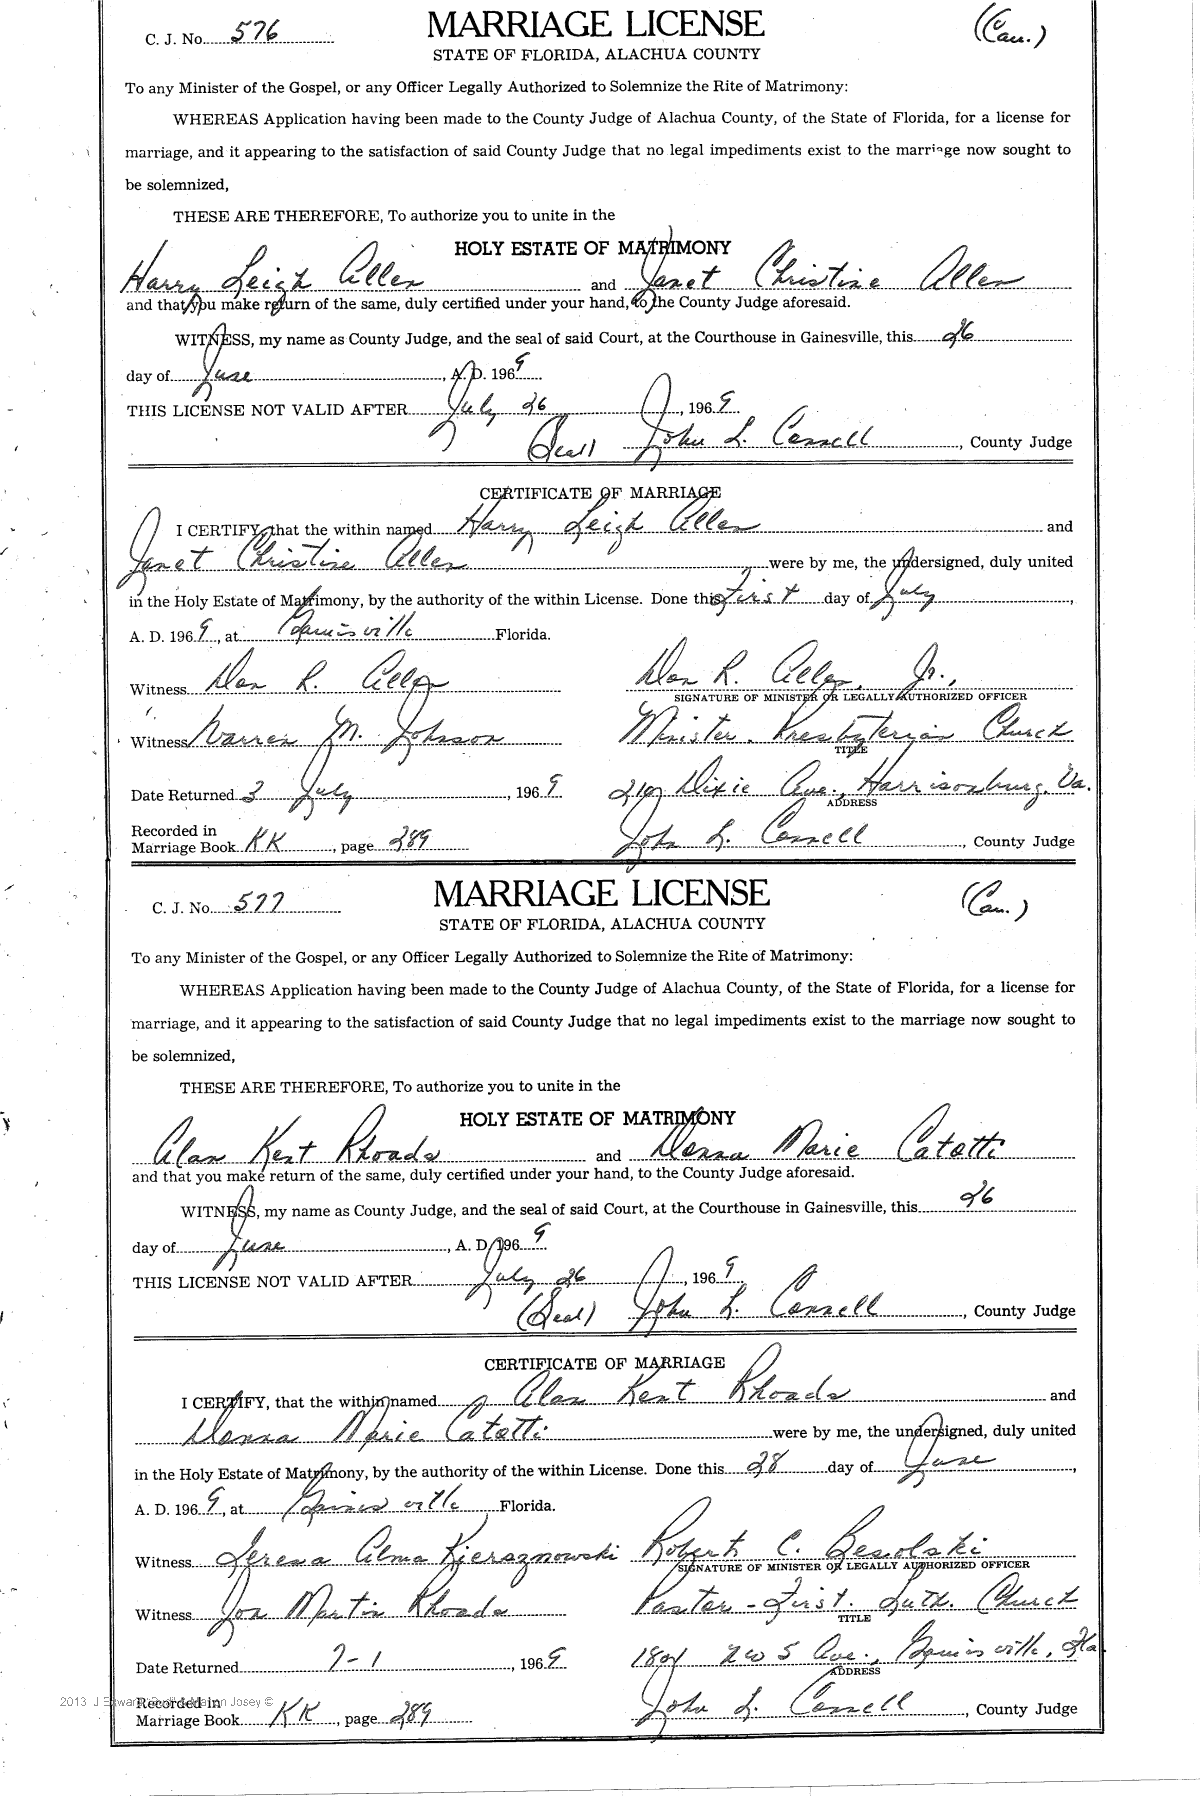 C. J. No. 576 MARRIAGE LICENSE (Cau.)
STATE OF FLORIDA, ALACHUA COUNTY
To any Minister of the Gospel, or any Officer Legally Authorized to Solemnize the Rite of Matrimony:
WHEREAS Application having been made to the County Judge of Alachua County, of the State of Florida, for a license for
marriage, and it appearing to the satisfaction of said County Judge that no legal impediments exist to the marriage now sought to
be solemnized,
THESE ARE THEREFORE, To authorize you to unite in the
HOLY ESTATE OF MATRIMONY
Harry Leigh Allen and Janet Christine Allen
and that you make return of the same, duly certified under your hand, to the County Judge aforesaid.
WITNESS, my name as County Judge, and the seal of said Court, at the Courthouse in Gainesville, this 26
day of June, A. D. 1969
THIS LICENSE NOT VALID AFTER July 26, 1969
(Seal) John L. Connell, County Judge
CERTIFICATE OF MARRIAGE
I CERTIFY, that the within named Harry Leigh Allen and
Janet Christine Allen were by me, the undersigned, duly united
in the Holy Estate of Matrimony, by the authority of the within License. Done this First day of July,
A. D. 1969, at Gainesville Florida.
Witness Don R. Allen Don R. Allen, Jr.,
SIGNATURE OF MINISTER OR LEGALLY AUTHORIZED OFFICER
Witness Warren M. Johnson Minister. Presbyterian Church
TITLE
Date Returned 3 July, 1969 Dixie Ave., Harrisonburg, Va.
ADDRESS
Recorded in
Marriage Book KK, page 289 John L. Connell, County Judge
C. J. No. 577 MARRIAGE LICENSE (Cau.)
STATE OF FLORIDA, ALACHUA COUNTY
To any Minister of the Gospel, or any Officer Legally Authorized to Solemnize the Rite of Matrimony:
WHEREAS Application having been made to the County Judge of Alachua County, of the State of Florida, for a license for
marriage, and it appearing to the satisfaction of said County Judge that no legal impediments exist to the marriage now sought to
be solemnized,
THESE ARE THEREFORE, To authorize you to unite in the
HOLY ESTATE OF MATRIMONY
Alan Kent Rhoads and Donna Marie Catotti
and that you make return of the same, duly certified under your hand, to the County Judge aforesaid.
WITNESS, my name as County Judge, and the seal of said Court, at the Courthouse in Gainesville, this 26
day of June, A. D. 1969
THIS LICENSE NOT VALID AFTER July 26, 1969
(Seal) John L. Connell, County Judge
CERTIFICATE OF MARRIAGE
I CERTIFY, that the within named Alan Kent Rhoads and
Donna Marie Catotti were by me, the undersigned, duly united
in the Holy Estate of Matrimony, by the authority of the within License. Done this 28 day of June,
A. D. 1969, at Gainesville Florida.
Witness Teresa Alma Kiersznowski Robert C. Besolski
SIGNATURE OF MINISTER OR LEGALLY AUTHORIZED OFFICER
Witness Jon Martin Rhoads Pastor - First. Luth. Church
TITLE
Date Returned 7-1, 1969 1801 NW 5 Ave., Gainesville, Fla.
ADDRESS
Recorded in
Marriage Book KK, page 289 John L. Connell, County Judge
2013 J Josey ©